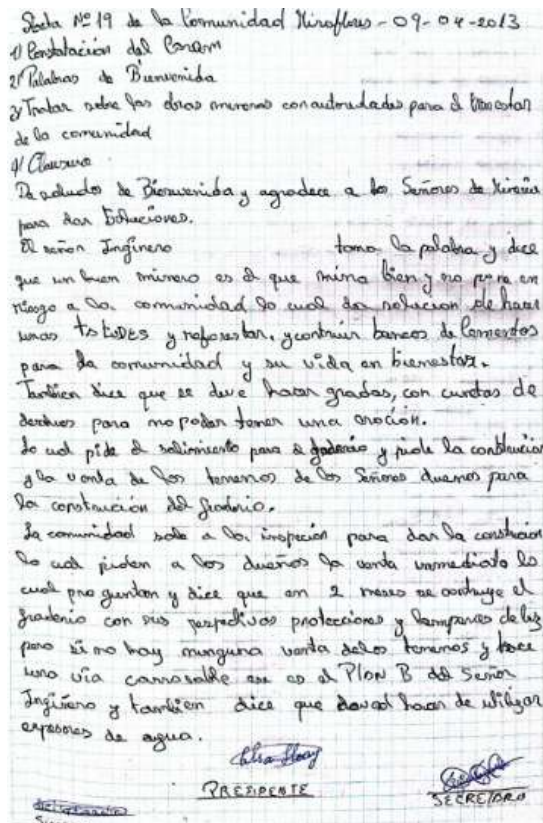 Acta Nº 19 de la Comunidad Miraflores - 09-04-2013
1/ Constatación del Corám
2/ Palabras de Bienvenida
3/ Tratar sobre las obras mineras con autoridades para el bienestar
de la comunidad
4/ Clausura
De saludos de Bienvenida y agradece a los Señores de Minería
para dar Soluciones.
El señor Inginero toma la palabra y dice
que un buen minero es el que mina bien y no pone en
riesgo a la comunidad lo cual da solucion de hacer
unos TALUDES y reforestar, y contruir bancos de Cementos
para la comunidad y su vida en bienestar.
Tambien dice que se deve hacer gradas, con cunetas de
derechos para no poder tener una eroción.
Lo cual pide el para el graderio y pide la contrución
y la venta de los terrenos de los Señores duenos para
la construción del graderio.
La comunidad sale a la inspeción para dar la construcion
lo cual piden a los dueños la venta immediata lo
cual preguntan y dice que en 2 meses se contruye el
graderio con sus respectivas protecciones y lamparas de luz
pero si no hay ninguna venta delos terrenos y hace
una vía carrosable ese es el Plan B del Señor
Inginero y tambien dice que han de utilizar
espesores de agua.
PRESIDENTE
SECRETARIA